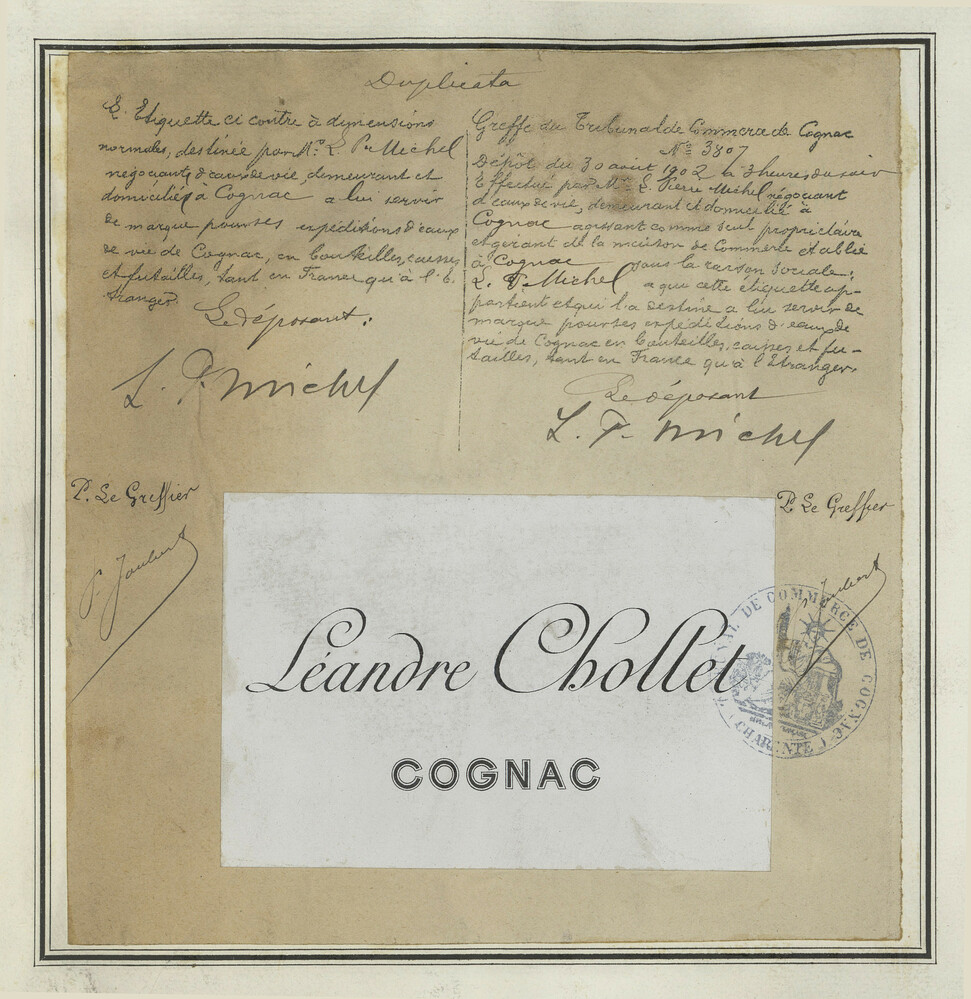 Duplicata
L'Etiquette ci contre à dimensions
normales, destinée par Mr. L. Pre Michel
négociant d'eaux de vie, demeurant et
domicilié à Cognac a lui servir
de marque pour ses expéditions d'eaux
de vie de Cognac, en bouteilles, caisses
et futailles, tant en France qu'à l'E-
tranger.
Le déposant.
L. P. Michel
Greffe du Tribunal de Commerce de Cognac
No 3807
Dépôt du 30 août 1902 à 3 heures du soir
Effectué par Mr. L. Pierre Michel négociant
d'eaux de vie, demeurant et domicilié à
Cognac agissant comme seul propriétaire
et gérant de la maison de Commerce établie
à Cognac sous la raison sociale:
L. P. Michel a que cette étiquette ap-
partient et qui l'a destine a lui servir de
marque pour ses expéditions d'eaux de
vie de Cognac en bouteilles, caisses et fu-
tailles, tant en France qu'à l'Etranger.
Le déposant
L. P. Michel
P. Le Greffier
P. Joubert
P. Le Greffier
Joubert
Léandre Chollet
COGNAC
DE COMMERCE DE COGNAC
(CHARENTE)